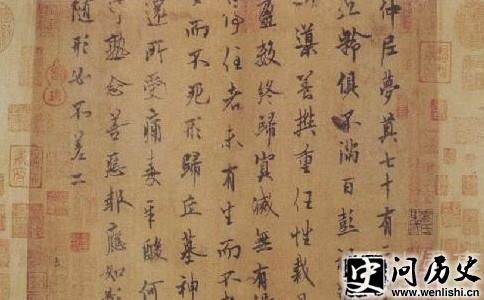 仲尼夢奠七十有
九齡俱不滿百彭
樊重任性裁
盈數終歸冥滅無有
停住者未有生而不
老而不死形歸丘墓神
還所受痛毒辛酸何
可熟念善惡報應如影
隨形必不差二
史问历史
www.wenlishi.cn